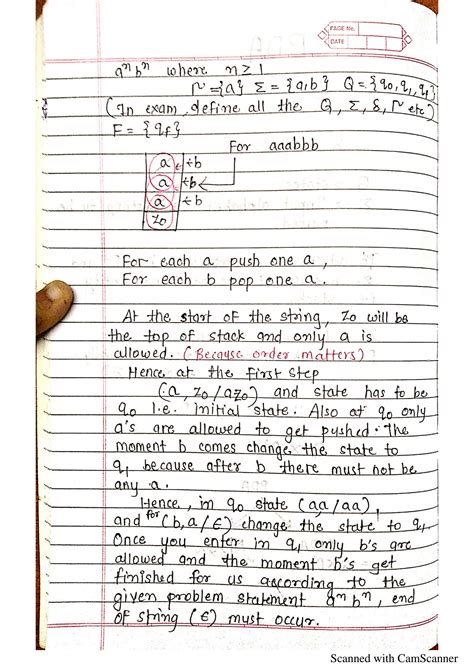 PAGE No.
DATE
aⁿbⁿ where n≥1
Γ={a} Σ={a,b} Q={q0,q1,qf}
(In exam, define all the Q, Σ, δ, Γ etc)
F={qf}
For aaabbb
a ÷b
a ÷b
a ÷b
z0
For each a push one a,
For each b pop one a.
At the start of the string, z0 will be
the top of stack and only a is
allowed. (Because order matters)
Hence at the first step
(a, z0/az0) and state has to be
q0 i.e. initial state. Also at q0 only
a's are allowed to get pushed. The
moment b comes change the state to
q1 because after b there must not be
any a.
Hence, in q0 state (aa/aa),
and for (b,a/ε) change the state to q1.
Once you enter in q1 only b's are
allowed and the moment b's get
finished for us according to the
given problem statement aⁿbⁿ, end
of string (ε) must occur.
Scanned with CamScanner